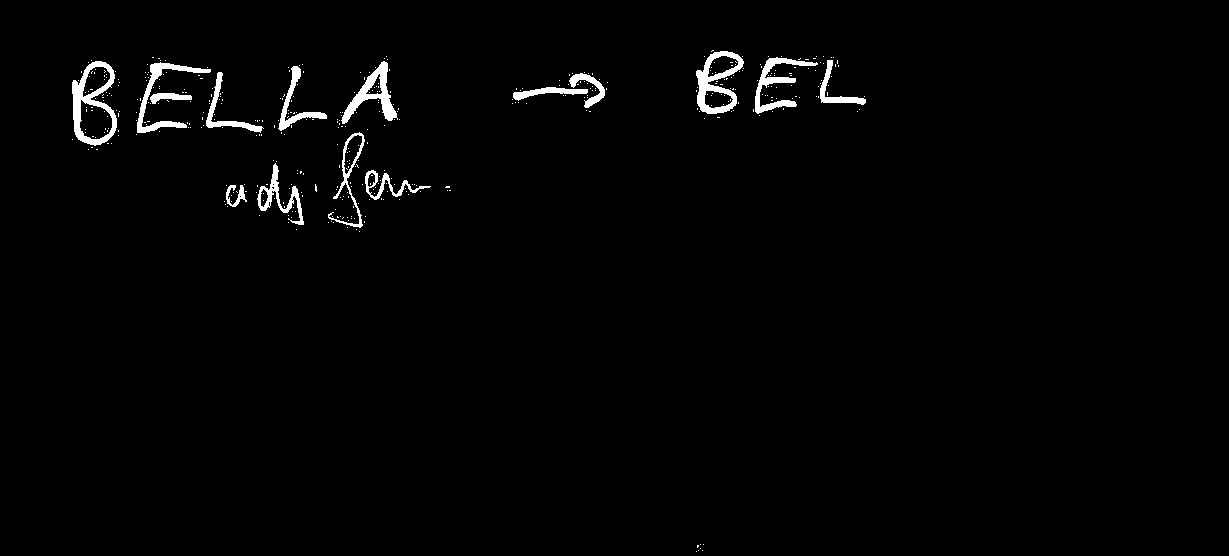 BELLA → BEL
adj. fem.